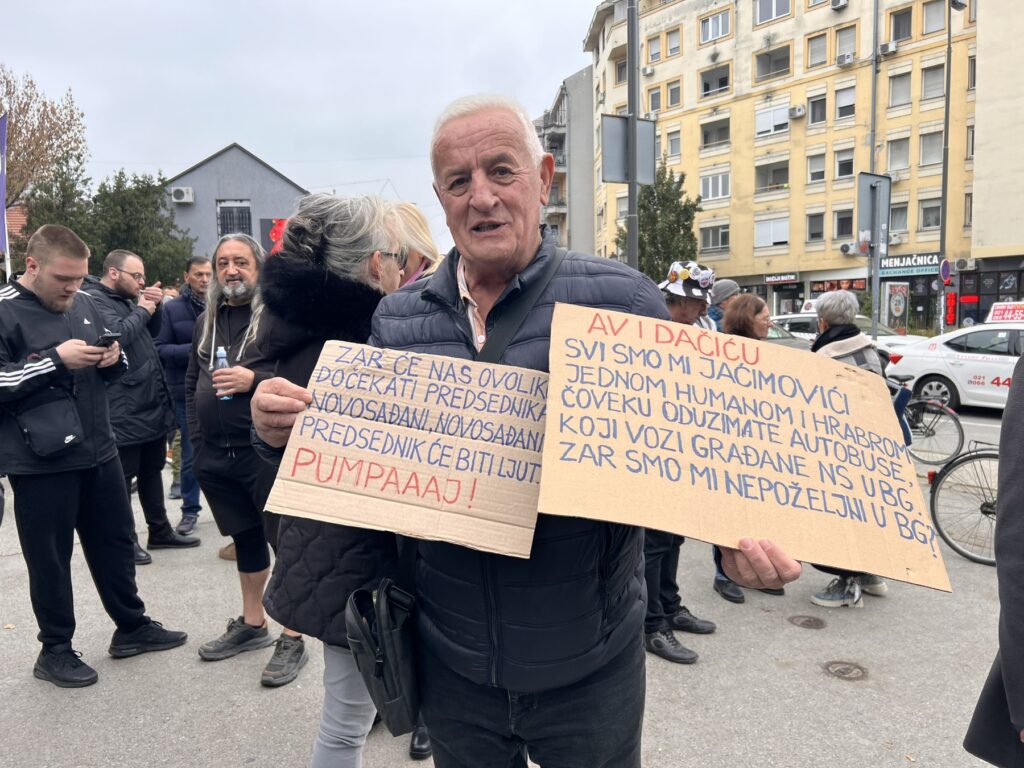 ZAR ĆE NAS OVOLIK
DOČEKATI PREDSEDNIKA
NOVOSAĐANI, NOVOSAĐANI
PREDSEDNIK ĆE BITI LJUT.
PUMPAAAJ!
AV I DAČIĆU
SVI SMO MI JAĆIMOVIĆI
JEDNOM HUMANOM I HRABROM
ČOVEKU ODUZIMATE AUTOBUSE,
KOJI VOZI GRAĐANE NS U BG.
ZAR SMO MI NEPOŽELJNI U BG?
MENJAČNICA
EXCHANGE OFFICE
44-55
021